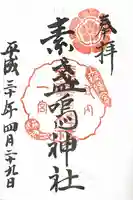 奉拝
素盞鳴神社
平成三十年四月二十九日